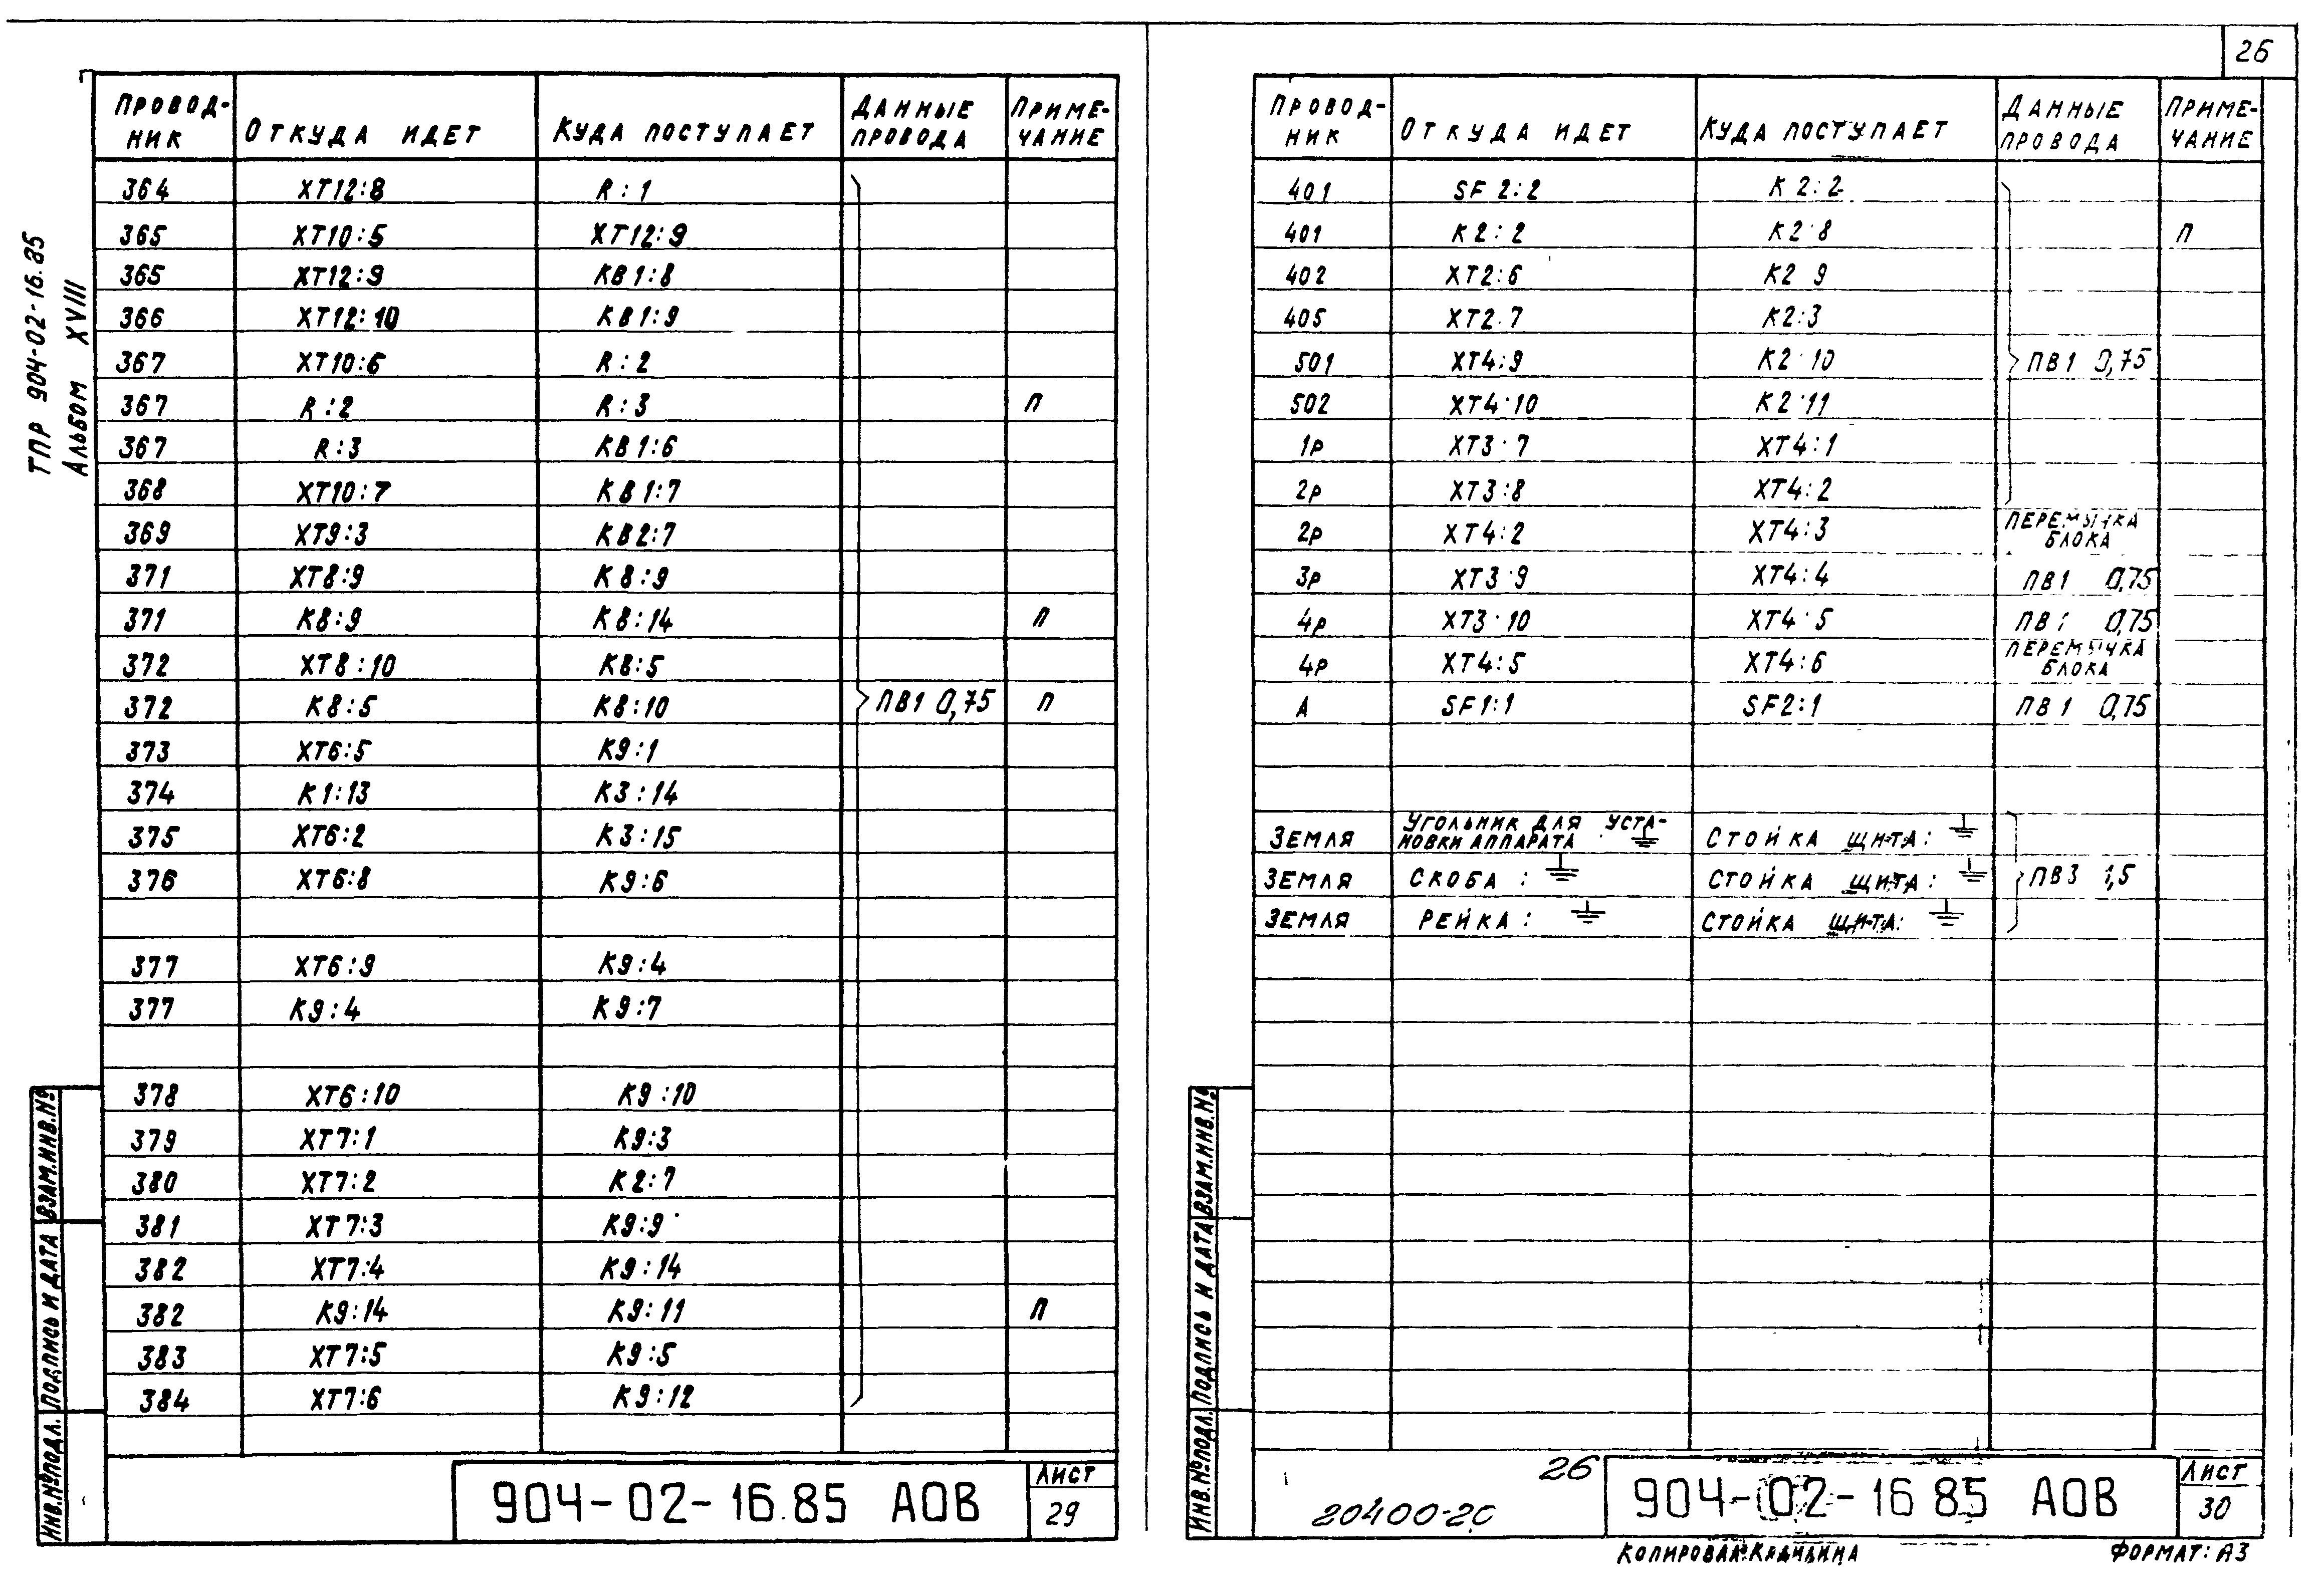 26
ТПР 904-02-16.85
Альбом XVIII
Провод-
ник
Откуда идет
Куда поступает
Данные
провода
Приме-
чание
364 XT12:8 R:1
365 XT10:5 XT12:9
365 XT12:9 KB1:8
366 XT12:10 KB1:9
367 XT10:6 R:2
367 R:2 R:3 П
367 R:3 KB1:6
368 XT10:7 KB1:7
369 XT9:3 KB2:7
371 XT8:9 K8:9
371 K8:9 K8:14 П
372 XT8:10 K8:5
372 K8:5 K8:10 ПВ1 0,75 П
373 XT6:5 K9:1
374 K1:13 K3:14
375 XT6:2 K3:15
376 XT6:8 K9:6
377 XT6:9 K9:4
377 K9:4 K9:7
378 XT6:10 K9:10
379 XT7:1 K9:3
380 XT7:2 K2:7
381 XT7:3 K9:9
382 XT7:4 K9:14
382 K9:14 K9:11 П
383 XT7:5 K9:5
384 XT7:6 K9:12
Взам.инв.№
Подпись и дата
Инв.№подл.
904-02-16.85 АОВ
Лист
29
Провод-
ник
Откуда идет
Куда поступает
Данные
провода
Приме-
чание
401 SF2:2 K2:2
401 K2:2 K2·8 П
402 XT2:6 K2 9
405 XT2.7 K2:3
501 XT4:9 K2·10 ПВ1 0,75
502 XT4·10 K2·11
1р XT3·7 XT4:1
2р XT3:8 XT4:2
2р XT4:2 XT4:3 Перемычка
блока
3р XT3·9 XT4:4 ПВ1 0,75
4р XT3·10 XT4·5 ПВ1 0,75
4р XT4:5 XT4:6 Перемычка
блока
А SF1:1 SF2:1 ПВ1 0,75
Земля Угольник для уста-
новки аппарата : ⏚ Стойка щита: ⏚
Земля Скоба : ⏚ Стойка щита: ⏚ ПВ3 1,5
Земля Рейка : ⏚ Стойка щита: ⏚
Взам.инв.№
Подпись и дата
Инв.№подл.
26
20400-20
904-02-16 85 АОВ
Лист
30
Копировал: Кадилина
Формат: А3